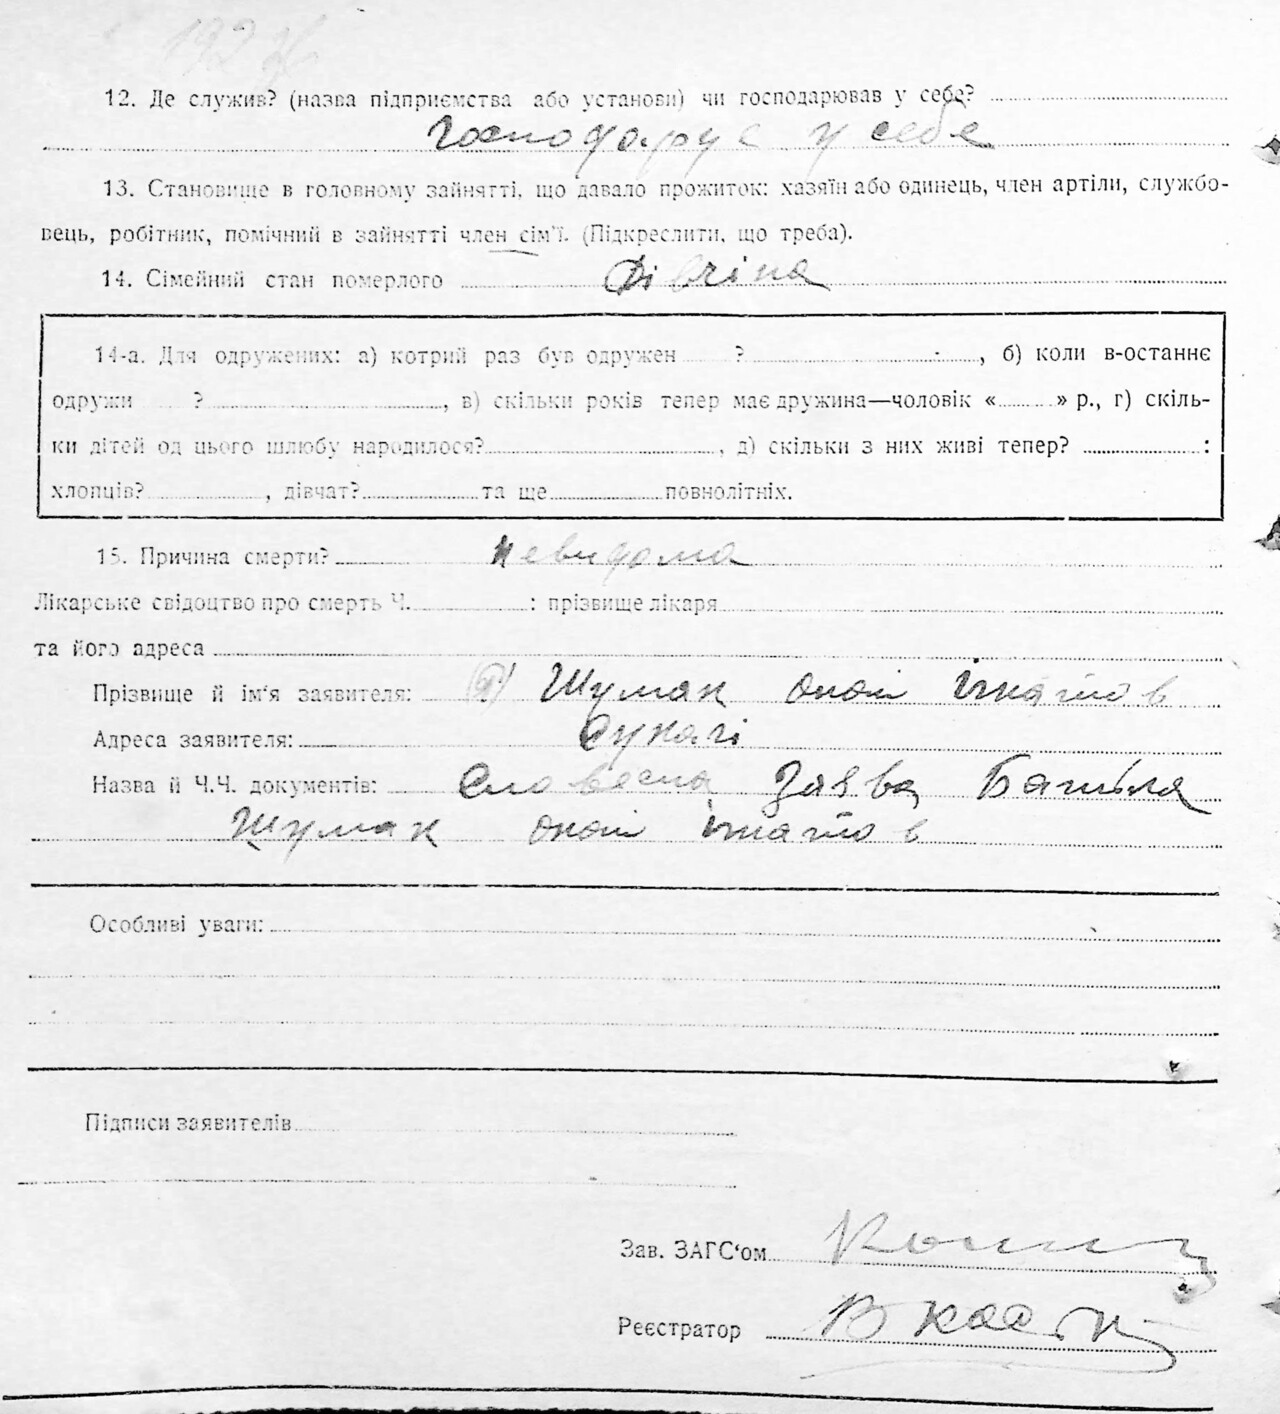 12. Де служив? (назва підприємства або установи) чи господарював у себе?
Господарує у себе
13. Становище в головному зайнятті, що давало прожиток: хазяїн або одинець, член артіли, службо-
вець, робітник, помічний в зайнятті член сім'ї. (Підкреслити, що треба).
14. Сімейний стан померлого Дівчина
14-а. Для одружених: а) котрий раз був одружен ? , б) коли в-останнє
одружи ? , в) скільки років тепер має дружина—чоловік « » р., г) скіль-
ки дітей од цього шлюбу народилося? , д) скільки з них живі тепер? :
хлопців? , дівчат? та ще повнолітніх.
15. Причина смерти? невидома
Лікарське свідоцтво про смерть Ч. : прізвище лікаря
та його адреса
Прізвище й ім'я заявителя: Шумак
Адреса заявителя: Сукачі
Назва й Ч.Ч. документів: Словесна Заява Батька
Шумак
Особливі уваги:
Підписи заявителів
Зав. ЗАГС'ом
Реєстратор